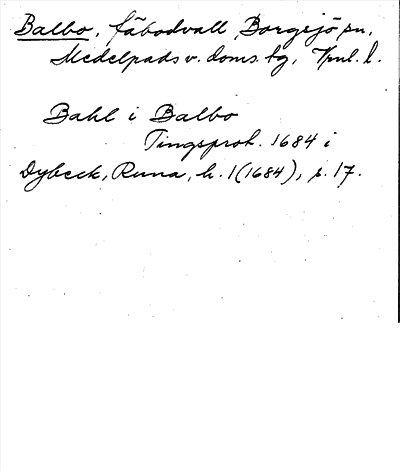 Balbo, fäbodvall Borgsjö sn,
Medelpads v. doms.tg, Vnl. l.
Bahl i Balbo
Tingsprot. 1684 i
Dybeck, Runa, h. 1 (1684), s. 17.